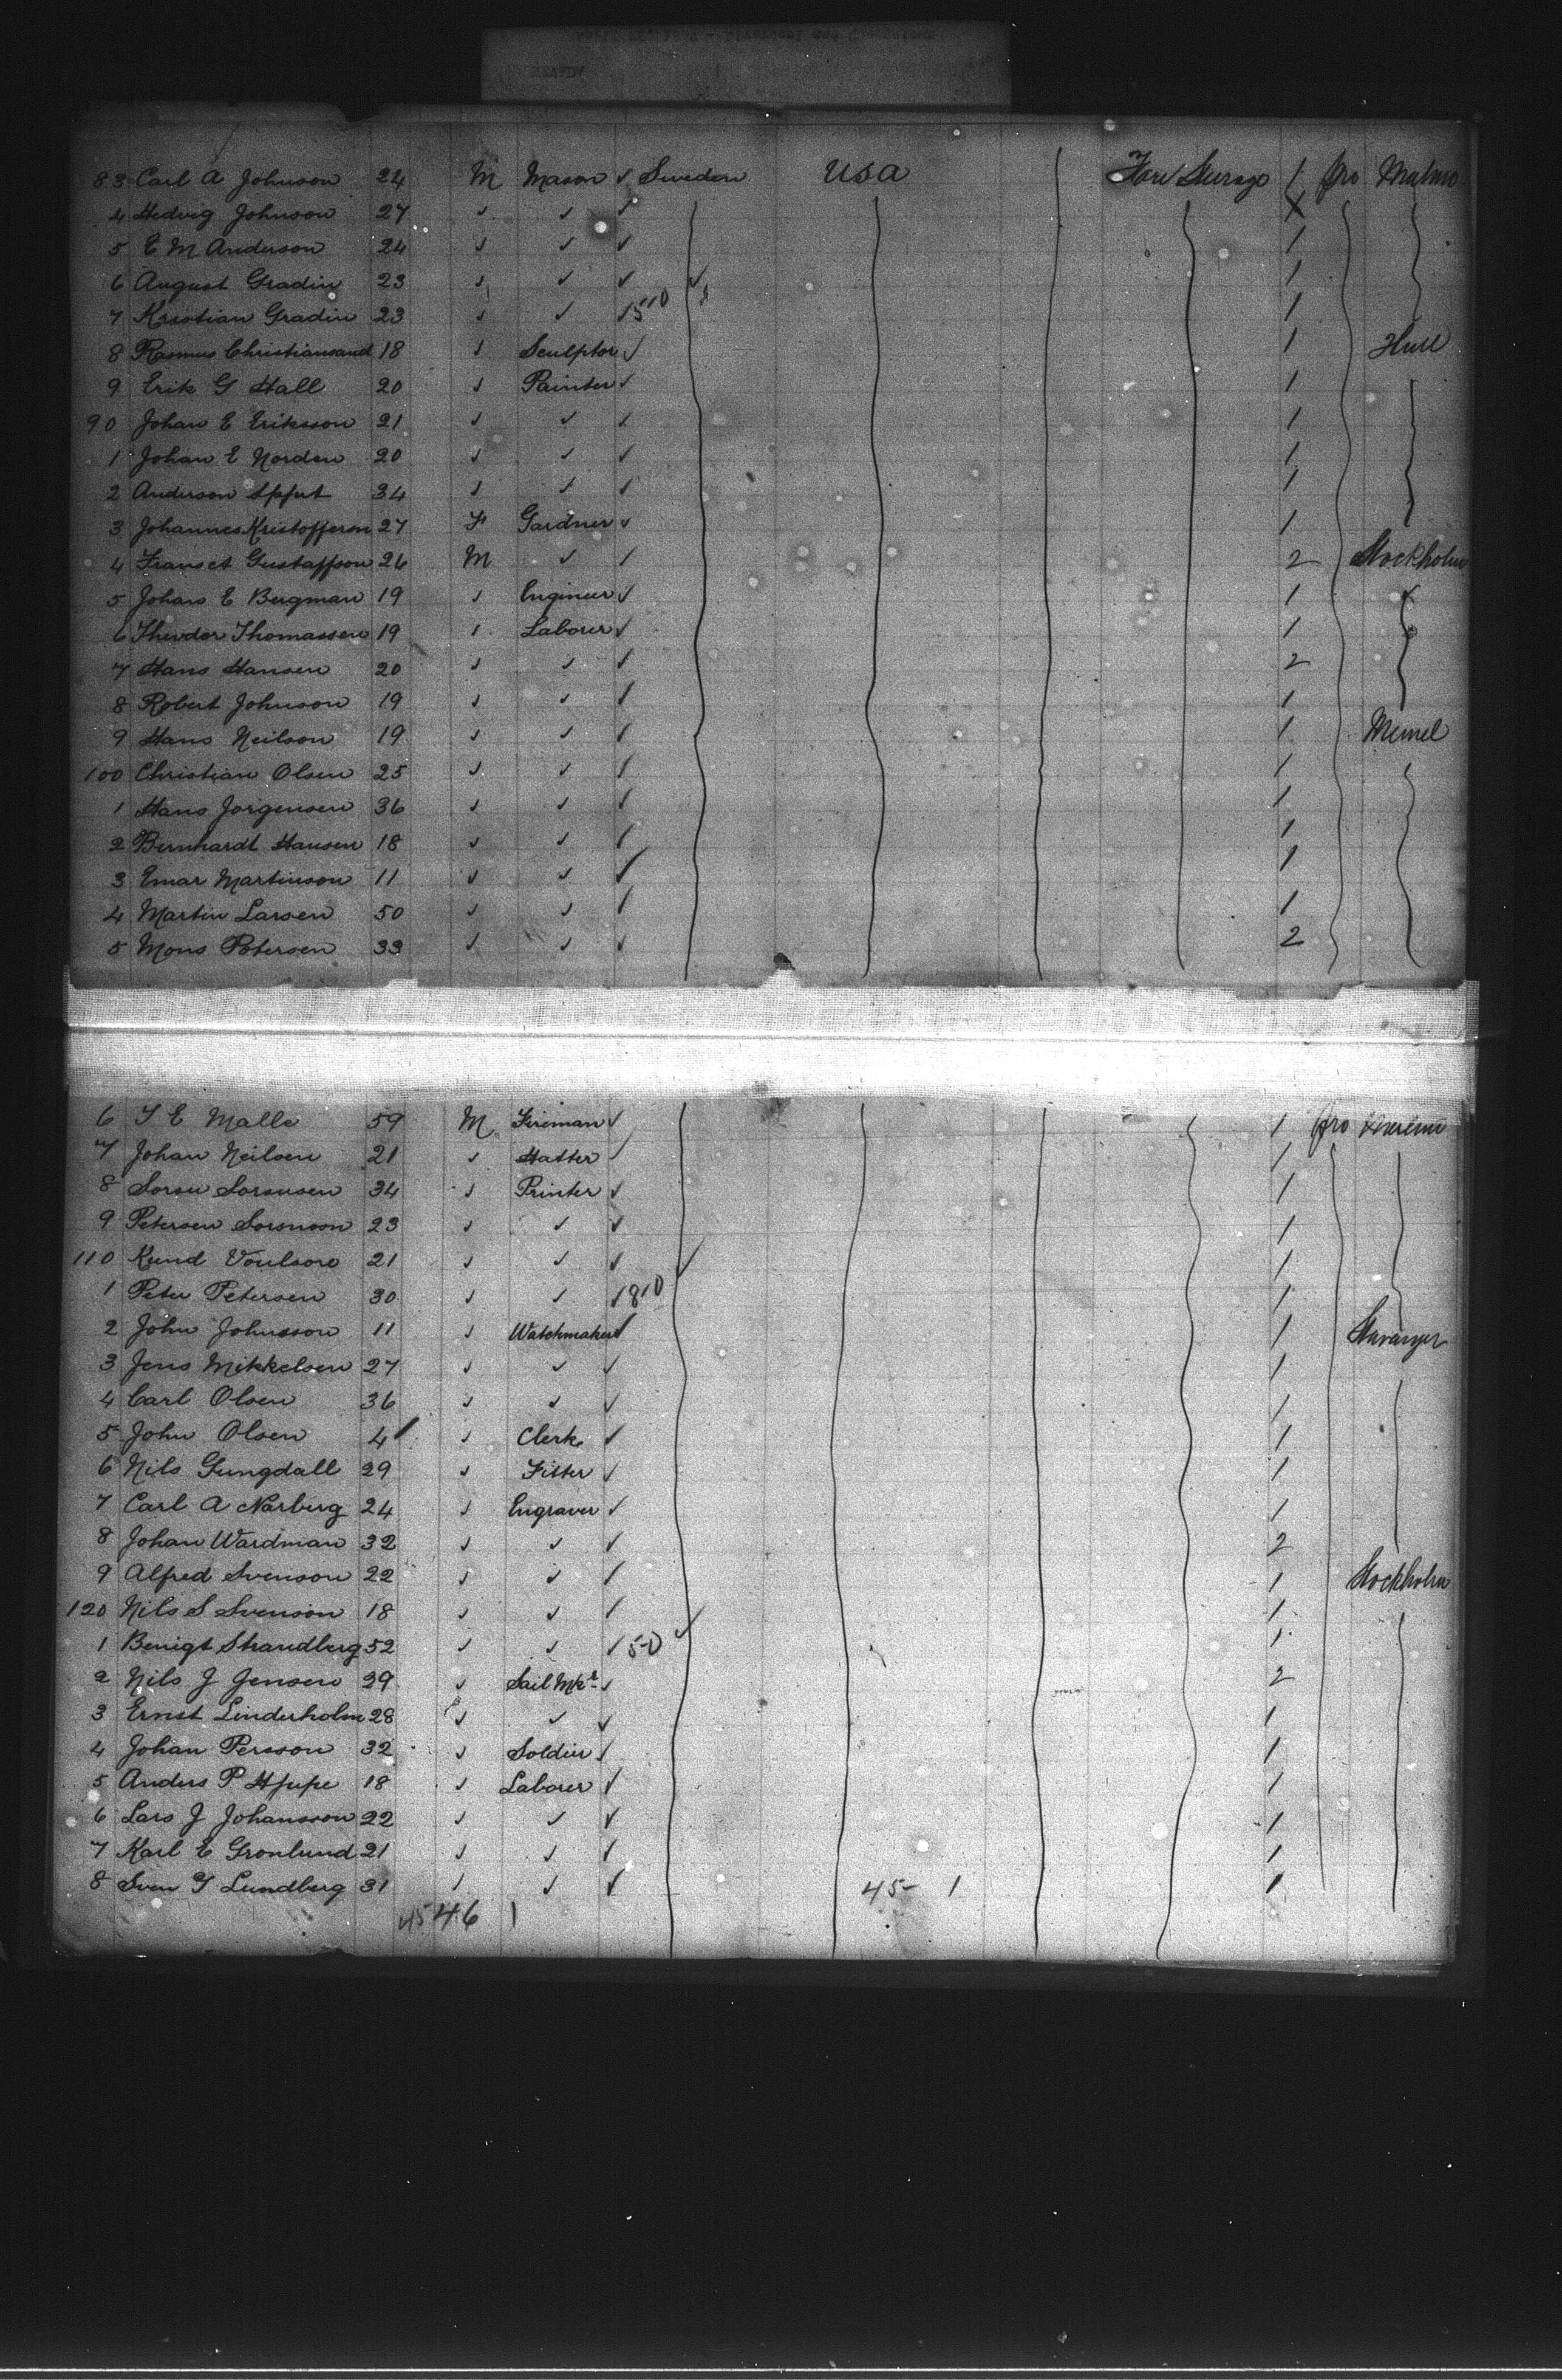 83 Carl A Johnson 24 M Mason ✓ Sweden USA Steerage 1 fro Malmo
4 Hedvig Johnson 27 ✓ ✓ ✓ X
5 E M Anderson 24 ✓ ✓ ✓ 1
6 August Gradin 23 ✓ ✓ ✓ 1
7 Kristian Gradin 23 ✓ ✓ ✓ 1
8 Rasmus Christiansand 18 ✓ Sculptor ✓ 1 Hull
9 Erik G Hall 20 ✓ Painter ✓ 1
90 Johan E Eriksson 21 ✓ ✓ ✓ 1
1 Johan E Norden 20 ✓ ✓ ✓ 1
2 Anderson 34 ✓ ✓ ✓ 1
3 Johannes Kristofferson 27 F Gardner ✓ 1
4 Gustaffson 26 M ✓ ✓ 2 Stockholm
5 Johan E Bergman 19 ✓ Engineer ✓ 1
6 Thevdor Thomassen 19 ✓ Laborer ✓ 1
7 Hans Hansen 20 ✓ ✓ ✓ 2
8 Robert Johnson 19 ✓ ✓ ✓ 1
9 Hans Neilson 19 ✓ ✓ ✓ 1 Memel
100 Christian Olsen 25 ✓ ✓ ✓ 1
1 Hans Jorgensen 36 ✓ ✓ ✓ 1
2 Bernhardt Hansen 18 ✓ ✓ ✓ 1
3 Emar Martinson 11 ✓ ✓ ✓ 1
4 Martin Larsen 50 ✓ ✓ ✓ 1
5 Mons Petersen 33 ✓ ✓ ✓ 2
6 Malle 59 M Fireman ✓ 1 fro
7 Johan Neilsen 21 ✓ Hatter ✓ 1
8 Soren Sorensen 34 ✓ Printer ✓ 1
9 Petersen Sorenson 23 ✓ ✓ ✓ 1
110 Kund 21 ✓ ✓ ✓ 1
1 Peter Petersen 30 ✓ ✓ ✓ 1
2 John Johnsson 11 ✓ Watchmaker ✓ 1 Stavanger
3 Jens Mikkelsen 27 ✓ ✓ ✓ 1
4 Carl Olsen 36 ✓ ✓ ✓ 1
5 John Olsen 4 ✓ Clerk ✓ 1
6 Nils 29 ✓ Fitter ✓ 1
7 Carl A Norberg 24 ✓ Engraver ✓ 1
8 Johan Wardman 32 ✓ ✓ ✓ 2
9 Alfred Svenson 22 ✓ ✓ ✓ 1 Stockholm
120 Nils S Svenson 18 ✓ ✓ ✓ 1
1 Benigt Strandberg 52 ✓ ✓ ✓ 1
2 Nils J Jensen 39 ✓ Sail Mkr ✓ 2
3 Ernst Linderholm 28 ✓ ✓ ✓ 1
4 Johan Persson 32 ✓ Soldier ✓ 1
5 Anders P 18 ✓ Laborer ✓ 1
6 Lars J Johansson 22 ✓ ✓ ✓ 1
7 Karl E Gronlund 21 ✓ ✓ ✓ 1
8 Sven Lundberg 31 ✓ ✓ ✓ 45 1 1
45 46 1